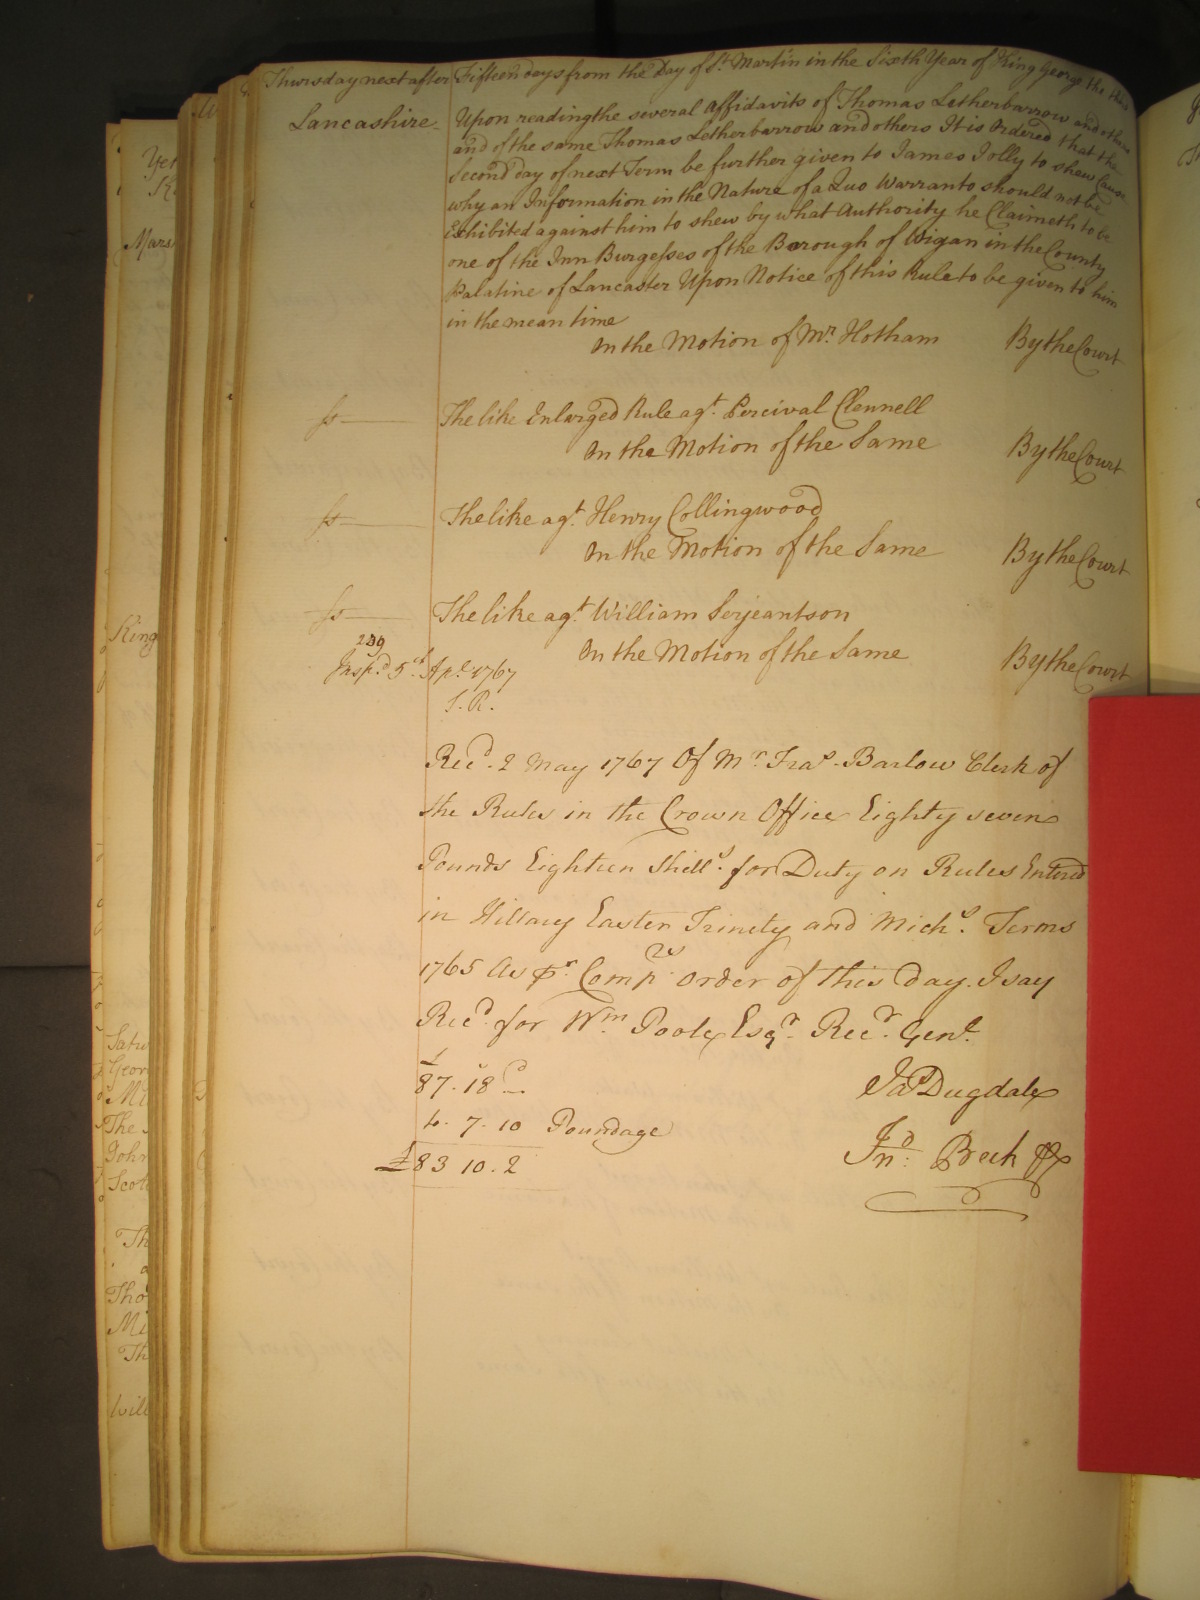 Thursday next after Fifteen days from the Day of St. Martin in the Sixth Year of King George the third
Lancashire Upon reading the several Affidavits of Thomas Letherbarrow and others
and of the same Thomas Letherbarrow and others It is Ordered that the
Second day of next Term be further given to James Jolly to shew Cause
why an Information in the Nature of a Quo Warranto should not be
Exhibited against him to shew by what Authority he Claimeth to be
one of the Inn Burgesses of the Borough of Wigan in the County
Palatine of Lancaster Upon Notice of this Rule to be given to him
in the mean time
On the Motion of Mr. Hotham By the Court
ss The like Enlarged Rule agt. Percival Clennell
On the Motion of the Same By the Court
ss The like agt. Henry Collingwood
On the Motion of the Same By the Court
ss The like agt. William Serjeantson
On the Motion of the Same By the Court
Insp.d 5th Apl. 1767
Recd. 2 May 1767 Of Mr. Fras. Barlow Clerk of
the Rules in the Crown Office Eighty seven
Pounds Eighteen Shills. for Duty on Rules Entered
in Hillary Easter Trinity and Michs. Terms
1765 As pr. Comprs order of this day. I say
Recd. for Wm. Poole Esqr. Recr. Genl.
87. 18 -
4. 7. 10 Poundage
£83 10. 2
Jas Dugdale
Jno. Beck
Yet
Mars
King
Satu
Geor
Mi
The
John
Scot
Th
Tho
Mi
Th
Will